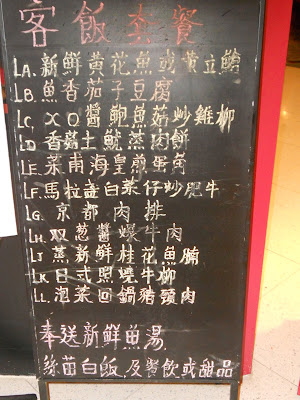 客飯套餐
LA. 新鮮黄花魚或黄立鯧
LB. 魚香茄子豆腐
LC. XO醬鮑魚菇炒雞柳
LD. 香菇土魷蒸肉餅
LE. 菜甫海皇煎蛋角
LF. 馬拉盏白菜仔炒肥牛
LG. 京都肉排
LH. 双葱醬爆牛肉
LJ. 蒸新鮮桂花魚腩
LK. 日式照燒牛柳
LL. 泡菜回鍋豬頸肉
奉送新鮮魚湯
絲苗白飯,及餐飲或甜品